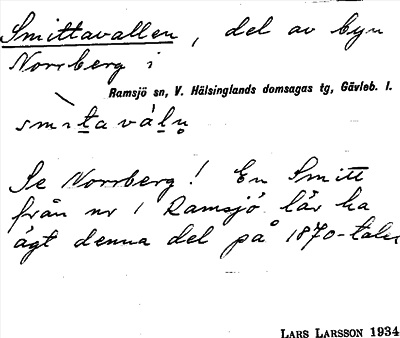 Smittavallen, del av byn
Norrberg i
Ramsjö sn, V. Hälsinglands domsagas tg, Gävleb. l.
Se Norrberg! En Smitt
från nr 1 Ramsjö lär ha
ägt denna del på 1870-talet
LARS LARSSON 1934